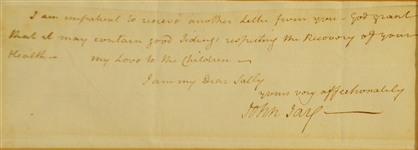 I am impatient to receive another Letter from you – God grant
that it may contain good Tidings respecting the Recovery of your
Health – my Love to the Children –
I am my Dear Sally
yours very affectionately
John Jay